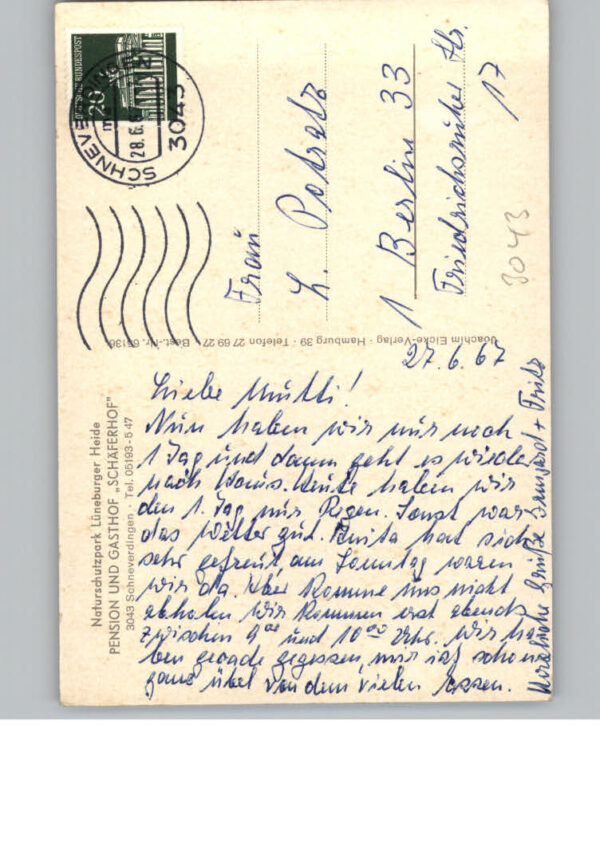 27.6.67
Liebe Mutti!
Nun haben wir nur noch
1 Tag und dann geht es wieder
nach Haus. Heute haben wir
den 1. Tag nur Regen. Sonst war
das Wetter gut. Anita hat sich
sehr gefreut, am Sonntag waren
wir da. Aber komme uns nicht
abholen wir kommen erst abends
zwischen 9 00 und 10 00 Uhr. Wir ha-
ben gerade gegessen, mir ist schon
ganz übel von dem vielen Essen.
Herzliche Grüße Irmgard + Fritz
Frau
L. Potratz
1 Berlin 33
Friedrichsruher Str.
17
3043
Naturschutzpark Lüneburger Heide
PENSION UND GASTHOF „SCHÄFERHOF"
3043 Schneverdingen · Tel. 05193-547
Joachim Eicke-Verlag · Hamburg 39 · Telefon 27 69 27 · Best.-Nr. 65136
DEUTSCHE BUNDESPOST
SCHNEVERDINGEN
28.6.67
3043